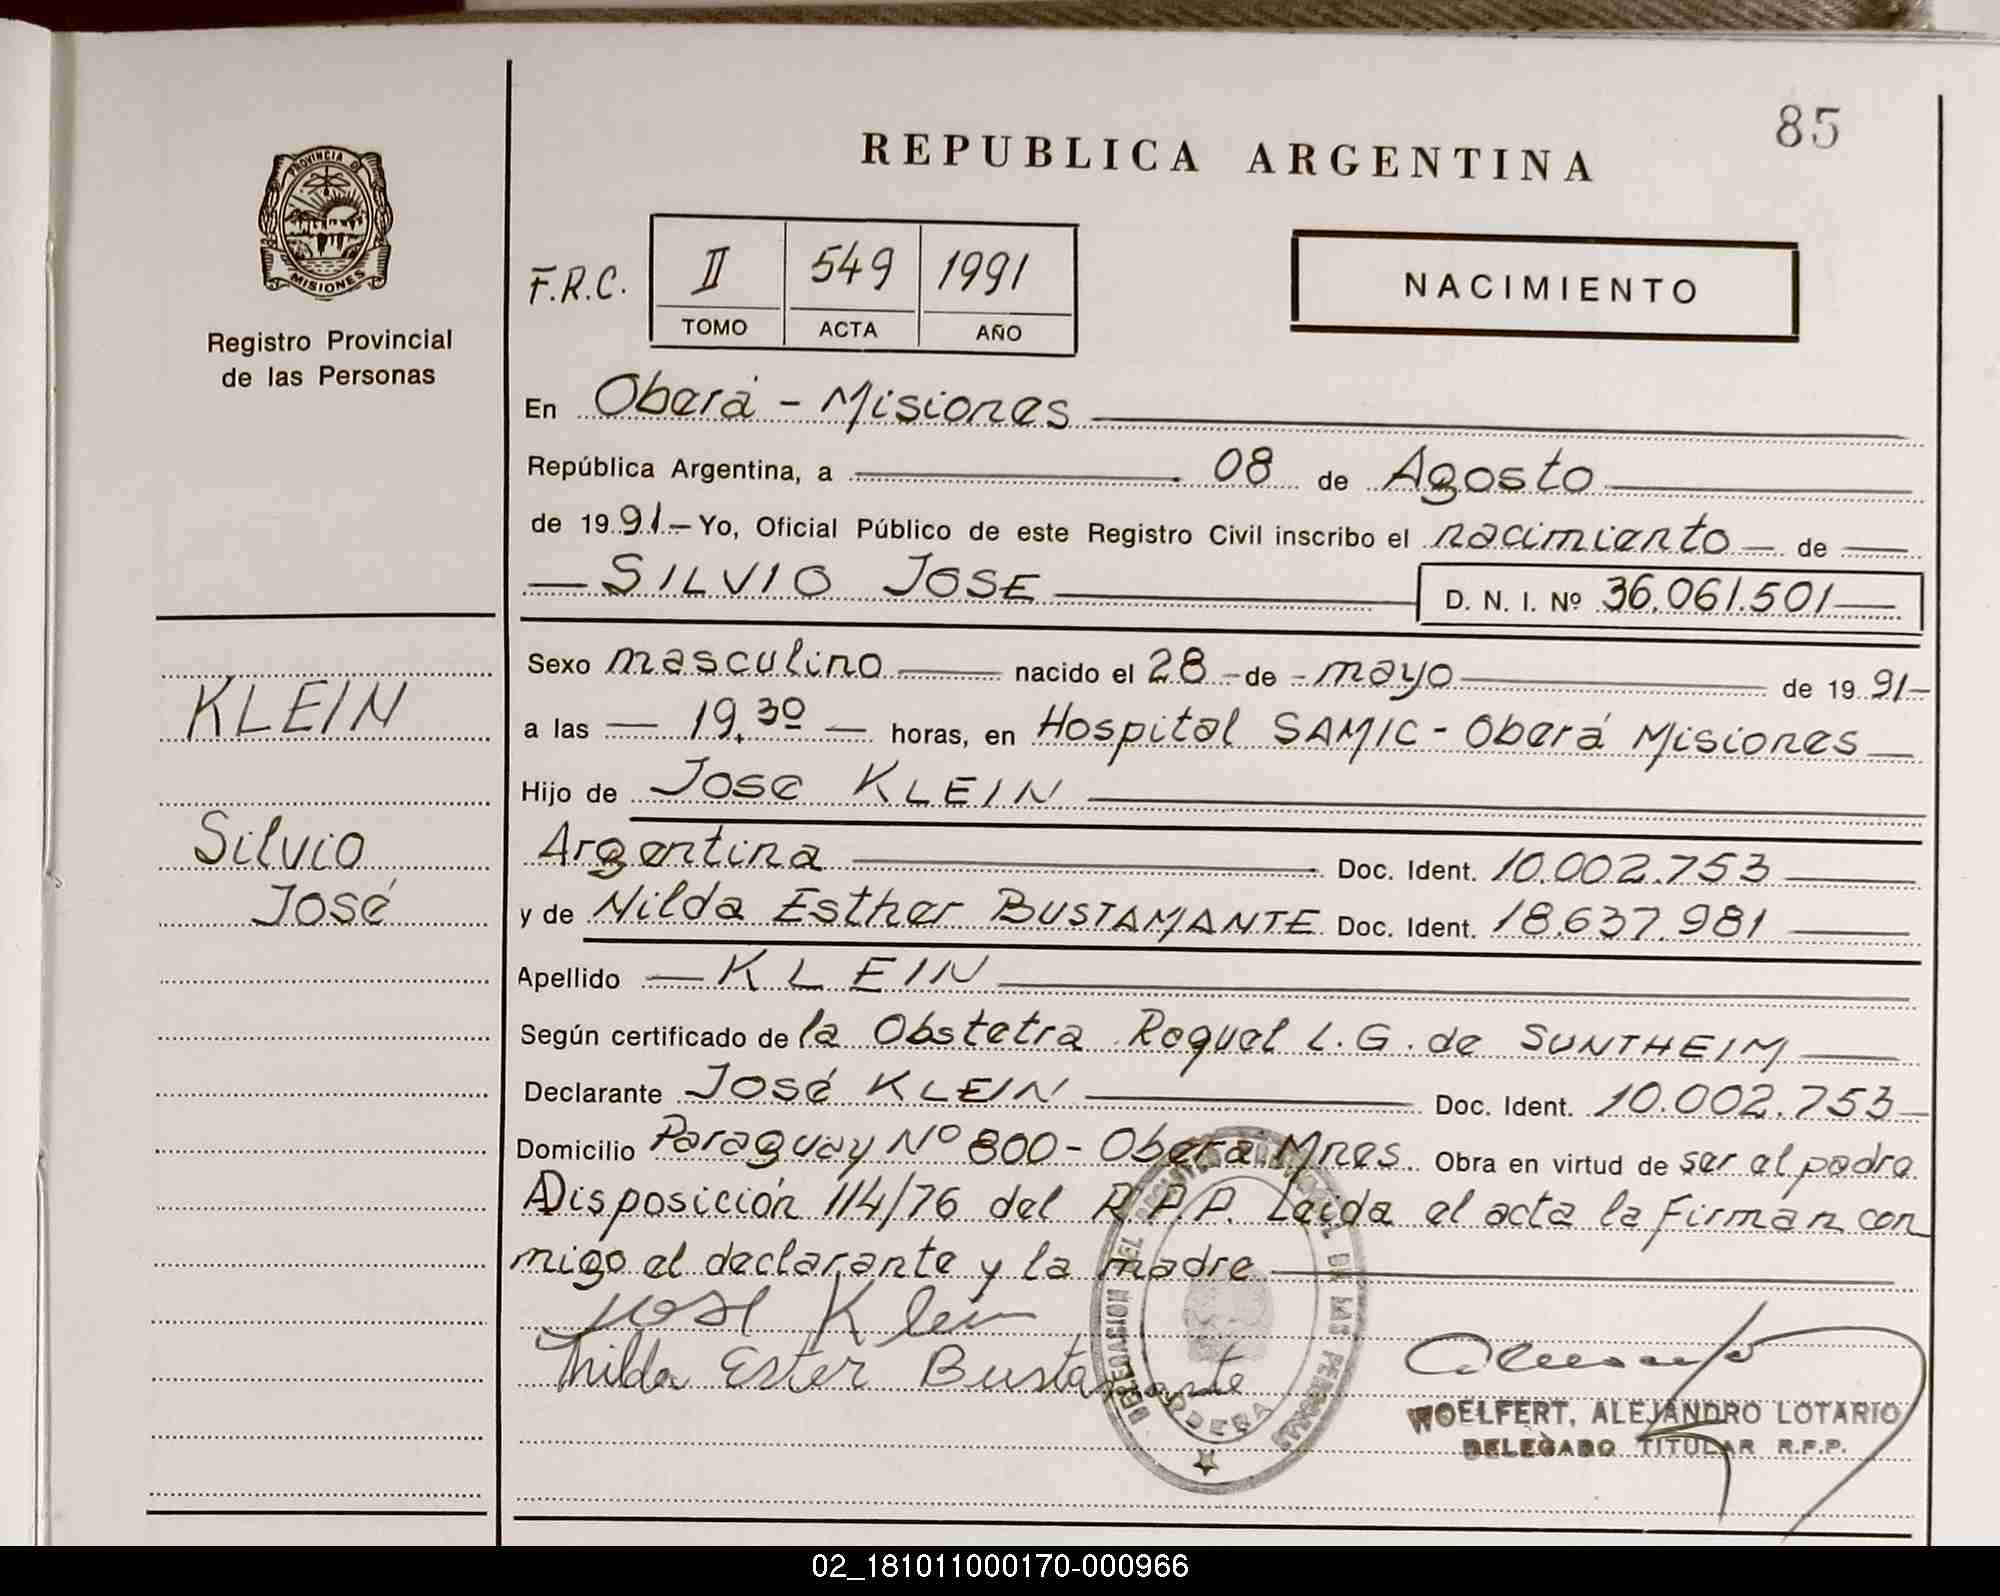 85
REPUBLICA ARGENTINA
PROVINCIA DE
MISIONES
Registro Provincial
de las Personas
F.R.C. II 549 1991
TOMO ACTA AÑO
NACIMIENTO
En Oberá - Misiones
República Argentina, a 08 de Agosto
de 1991.- Yo, Oficial Público de este Registro Civil inscribo el nacimiento de
SILVIO JOSE D. N. I. Nº 36.061.501
Sexo masculino nacido el 28 de mayo de 1991-
a las 19,30 horas, en Hospital SAMIC - Oberá Misiones
Hijo de Jose KLEIN
Argentina Doc. Ident. 10.002.753
y de Nilda Esther BUSTAMANTE Doc. Ident. 18.637.981
Apellido KLEIN
Según certificado de la Obstetra Raquel L. G. de SUNTHEIM
Declarante José KLEIN Doc. Ident. 10.002.753
Domicilio Paraguay Nº 800 - Oberá Mnes. Obra en virtud de ser el padre
Disposición 114/76 del R.P.P. Leida el acta la Firman con
migo el declarante y la madre
KLEIN
Silvio
José
José Klein
Nilda Ester Bustamante
DELEGACION DEL REGISTRO PROVINCIAL DE LAS PERSONAS
OBERA
WOELFERT, ALEJANDRO LOTARIO
DELEGADO TITULAR R.P.P.
02_181011000170-000966